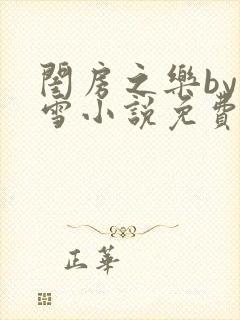 閨房之樂by
雪小說免費
正華